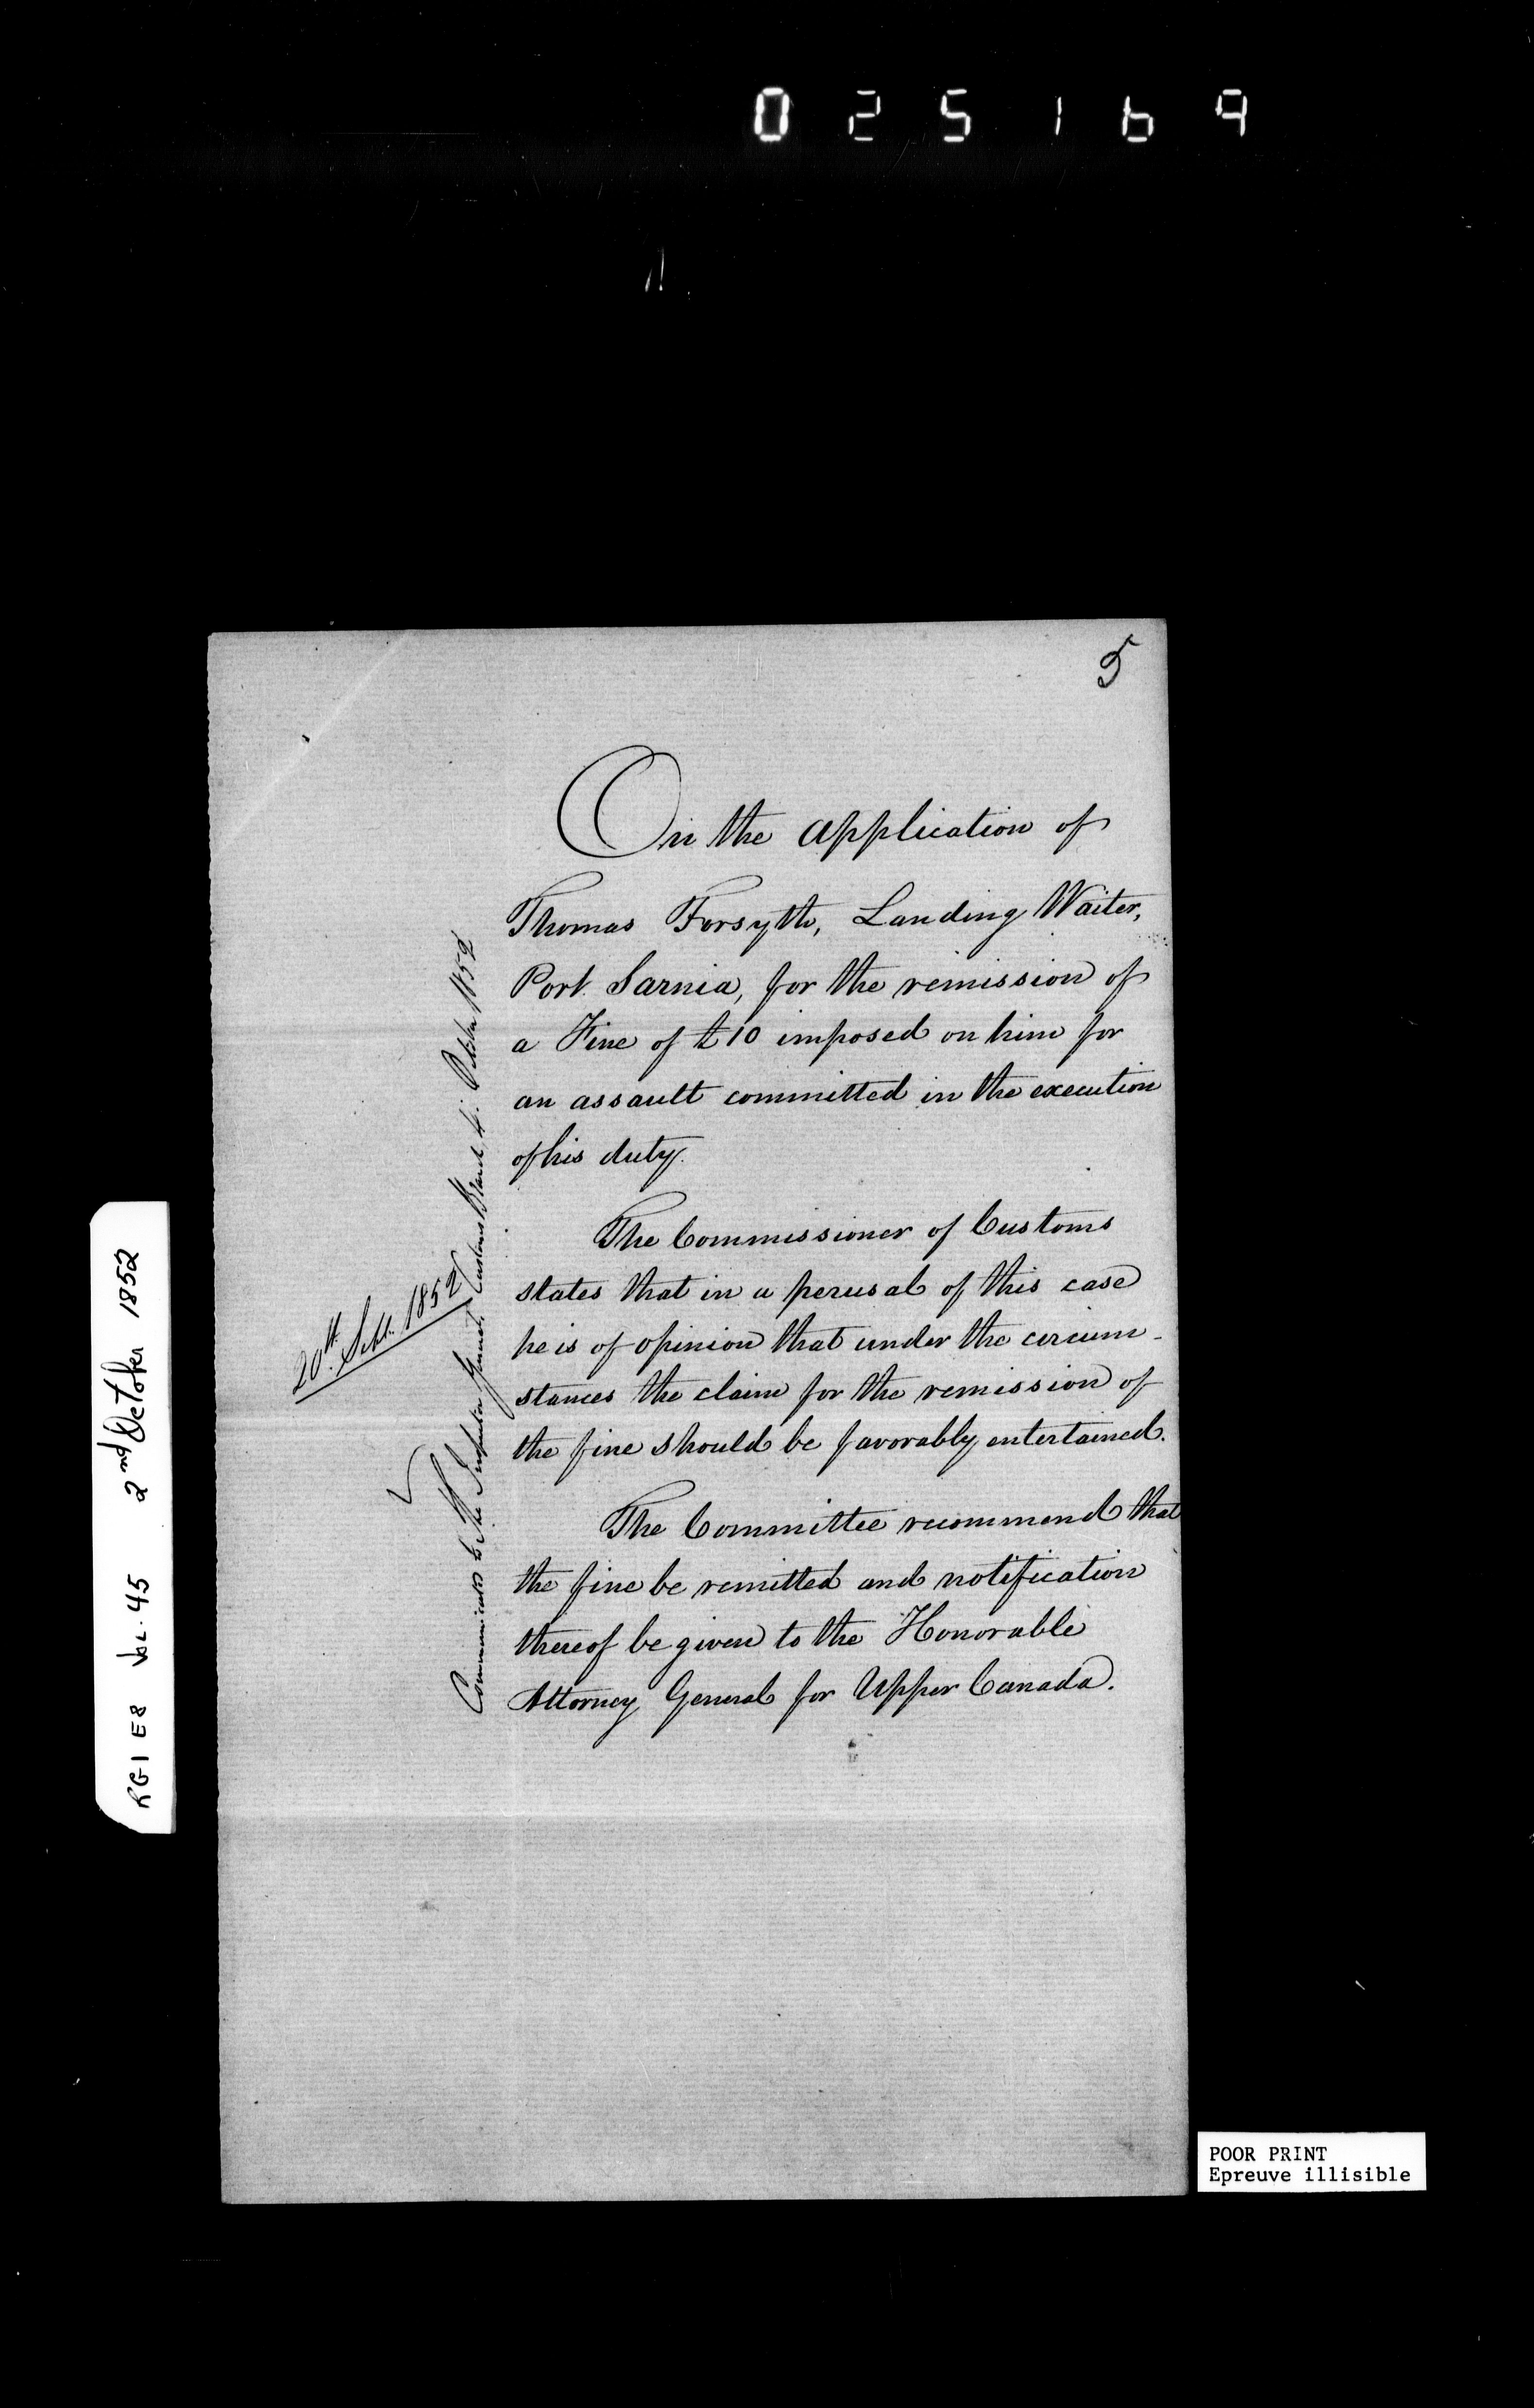 025169
5
On the application of
Thomas Forsyth, Landing Waiter,
Port Sarnia, for the remission of
a Fine of £10 imposed on him for
an assault committed in the execution
of his duty.
The Commissioner of Customs
states that in a perusal of this case
he is of opinion that under the circum-
stances the claim for the remission of
the fine should be favorably entertained.
The Committee recommend that
the fine be remitted and notification
thereof be given to the Honorable
Attorney General for Upper Canada.
20th Sept. 1852
Communicated to The Inspector General, Customs Branch, 4: October 1852
RG1 E8 Vol. 45 2nd October 1852
POOR PRINT
Epreuve illisible